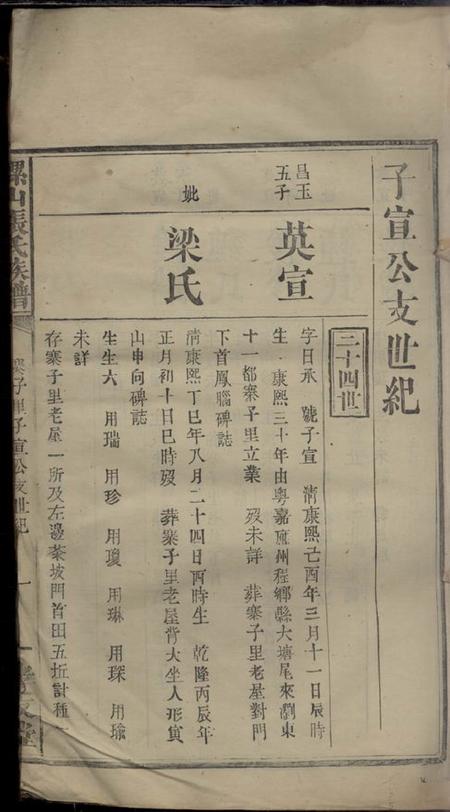 子宣公支世紀
二十四世
昌玉五子
英宣
字日承 號子宣 清康熙己酉年三月十一日辰時
生 康熙三十年由粵嘉應州程鄉縣大塘尾來瀏東
十一都寨子里立業 歿未詳 葬寨子里老屋對門
下首鳳腦碑誌
妣
梁氏
清康熙丁巳年八月二十四日酉時生 乾隆丙辰年
正月初十日巳時歿 葬寨子里老屋背大坐人形寅
山申向碑誌
生生六 用瑞 用珍 用瓊 用琳 用琛 用瑜
未詳
存寨子里老屋一所及左邊茶坡門首田五坵計種一
張氏族譜
寨子里子宣公支世紀
一